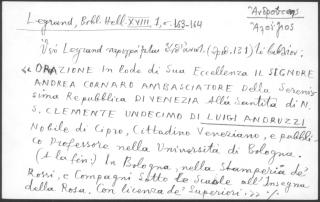 Ἀνδρούτσης
Legrand, Bibl. Hell. XVIII, 1, σ. 163-164
Ἀλοΐσιος
Legrand
« ORAZIONE In lode di Sua Eccellenza IL SIGNORE
ANDREA CORNARO AMBASCIATORE Della Serenis-
sima Repubblica DI VENEZIA Alla Santità di N.
S. CLEMENTE UNDECIMO DI LUIGI ANDRUZZI
Nobile di Cipro, Cittadino Veneziano, e pubbli-
co Professore nella Università di Bologna.
(A la fin:) In Bologna, nella Stamperia de'
Rossi, e Compagni Sotto le Scuole all'Insegna
della Rosa. Con licenza de' Superiori. »